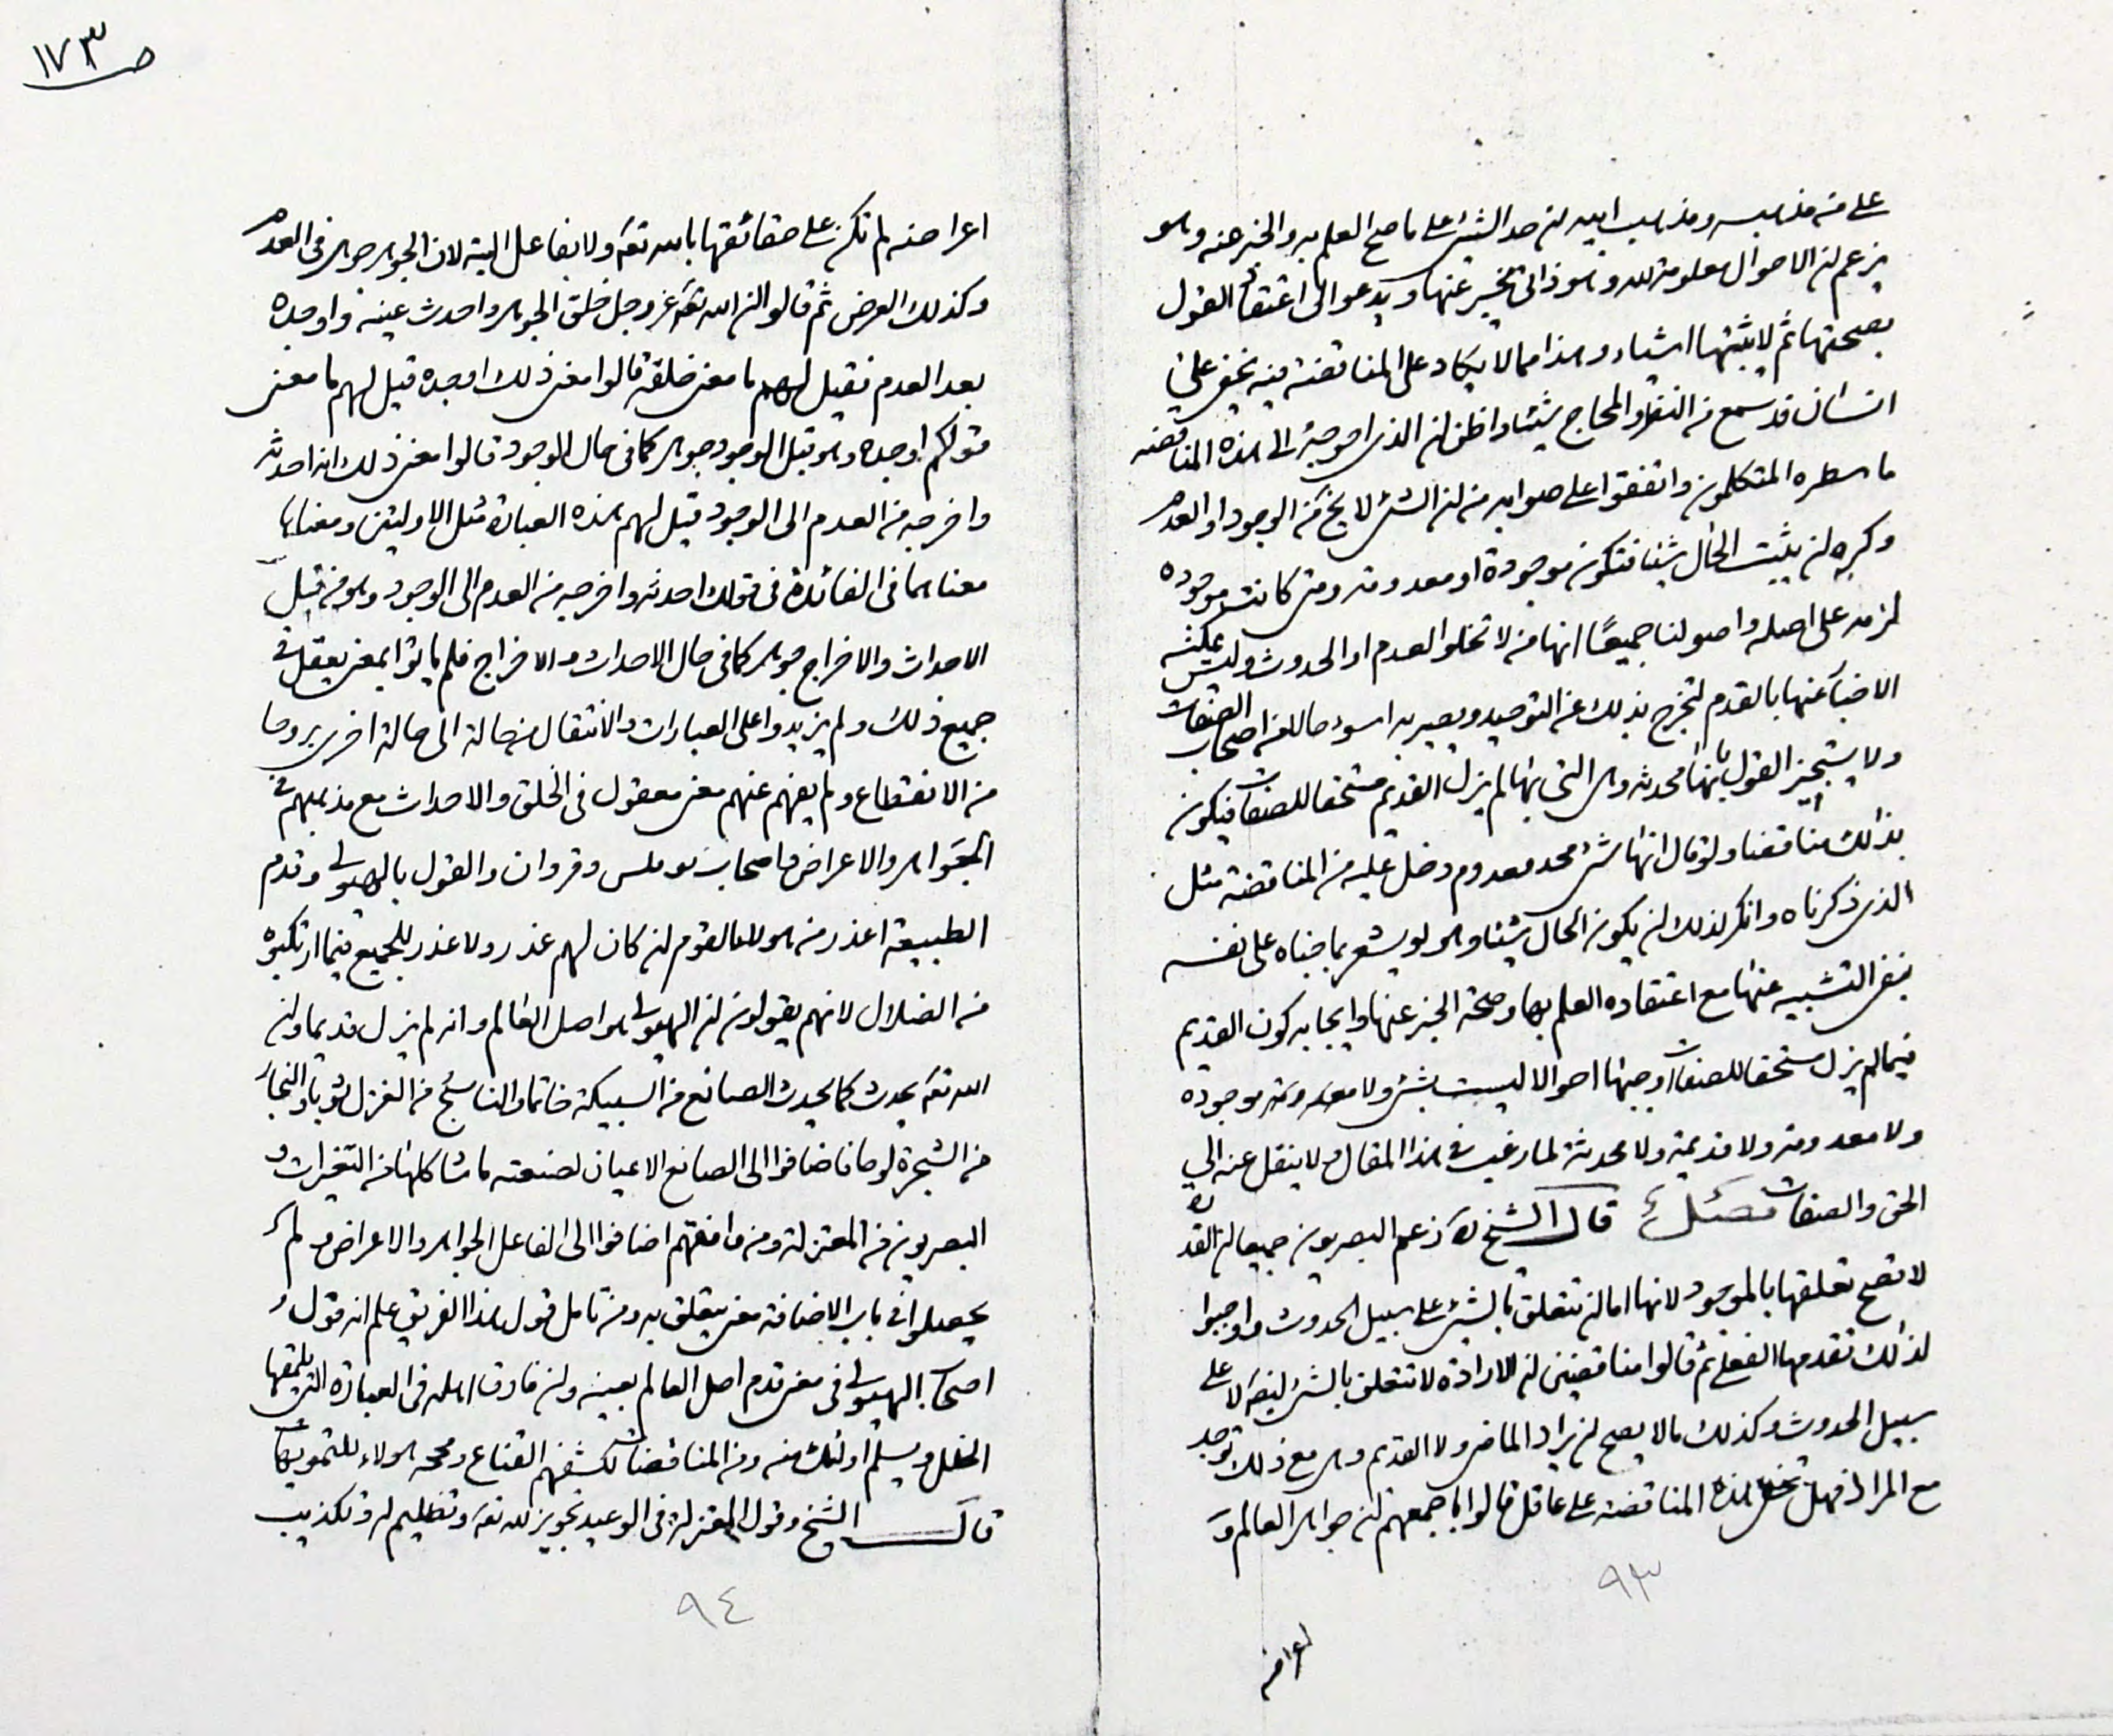 على من مذهبه ومذهب ابيه لن حد الشئ على ما صح العلم به والخبر عنه وهو
يزعم لن الاحوال معلومة لله وهو ذاتى يخبر عنها ويدعوا الى اعتقاد القول
بصحتها ثم لا يثبتها اشياء وهذا مما لا يكاد على المناقضة فيه يخفى على
انسان قد سمع من النظر والحجاج شيئا واظن لن الذى احوجه الى هذه المناقضه
ما سطره المتكلمون واتفقوا على صوابه من لن الشئ لا يخ من الوجود او العدم
وكره لن يثبت الحال شيئا فتكون موجودة او معدومة ومتى كانت موجوده
لزمه على اصله واصولنا جميعًا انها من لا تخلو العدم او الحدوث وليس يمكنه
الاخبا عنها بالقدم لتخرج بذلك عن التوحيد ويصير به اسوء حالا من اصحاب الصفات
ولا يستجيز القول بانها محدثه وهى التى بها لم يزل القديم مستحقا للصفات فيكون
بذالك مناقضا ولو قال انها شئ محد معدوم دخل عليه من المناقضة مثل
الذى ذكرناه وانكر لذلك لن يكون الحال شيئا وهو لو يشعر بما جناه على نفسه
بنفى التشبيه عنها مع اعتقاده العلم بها وصحة الخبر عنها وايجابه كون القديم
فيما لم يزل مستحقا للصفات اوجبها احوالا ليست بشئ ولا موجوده
ولا معدومة ولا قديمة ولا محدثة لما رغب فى هذا المقال ولا ينقل عنه الى
الحق والصفات فصل قال الشيخ زعم البصريون جميعا لن القدرة
لا تصح تعلقها بالموجود لانها اما لن تتعلق بالشئ على سبيل الحدوث واوجبوا
لذالك تقدمها الفعل ثم قالوا مناقضين لن الارادة لا تتعلق بالشئ لنفسه الا على
سبيل الحدوث وكذلك ما لا يصح لن يراد الماضى ولا القديم وهى مع ذلك توجد
مع المراد فهل تخفى هذه المناقضه على عاقل قالوا باجمعهم لن جواهر العالم و
٩٣
اعراضه
ص ١٧٣
اعراضه لم تكن على حقائقها بالله تع ولا بفاعل البتة لان الجوهر جوهر فى العدم
وكذلك العرض ثم قالوا لن الله تع عز وجل خلق الجوهر واحدث عينه واوجده
بعد العدم فقيل لهم ما معنى خلقه قالوا معنى ذلك اوجده قيل لهم ما معنى
قولكم اوجده وهو قبل الوجود جوهر كما فى حال الوجود قالوا معنى ذلك انه احدثه
واخرجه من العدم الى الوجود قيل لهم هذه العبارة مثل الاوليتين ومعناها
معناهما فى الفائدة فى قولك احدثه واخرجه من العدم الى الوجود وهو من قبل
الاحداث والاخراج جوهر كما فى حال الاحداث والاخراج فلم ياتوا بمعنى يعقل فى
جميع ذلك ولم يزيدوا على العبارات والانتقال من حالة الى حالة اخرى بروحا
من الانقطاع ولم يفهم عنهم معنى معقول فى الخلق والاحداث مع مذهبهم فى
الجواهر والاعراض واصحاب والقول بالهيولى وقدم
الطبيعة اعذر من هولاء القوم لن كان لهم عذر ولا عذر للجميع فيما ارتكبوه
من الضلال لانهم يقولون لن الهيولى هو اصل العالم وانه لم يزل قديما ولن
الله تع يحدث كما يحدث الصانع من السبيكة خاتما والناسج من الغزل ثوبا والنجار
من الشجرة لوحا فاضافوا الى الصانع الاعيان لصنعته ما شاكلها من التغيرات و
البصريون من المعتزلة ومن وافقهم اضافوا الى الفاعل الجواهر والاعراض ولم
يحصلوا فى باب الاضافة معنى يتعلق به ومن تامل قول هذا الفريق علم انه قول
اصحاب الهيولى فى معنى قدم اصل العالم بعينه ولن فارق اهله فى العبارة التى يلحقها
الخلل ويسلم اولئك منه ومن المناقضات لكشفهم القناع ومحجه هولاء للتمويهات
قال الشيخ وقول المعتزلة فى الوعيد تجويز لله تع وتظليم له وتكذيب
٩٤